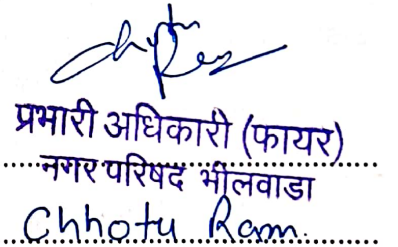 प्रभारी अधिकारी (फायर)
नगर परिषद भीलवाडा
Chhotu Ram.